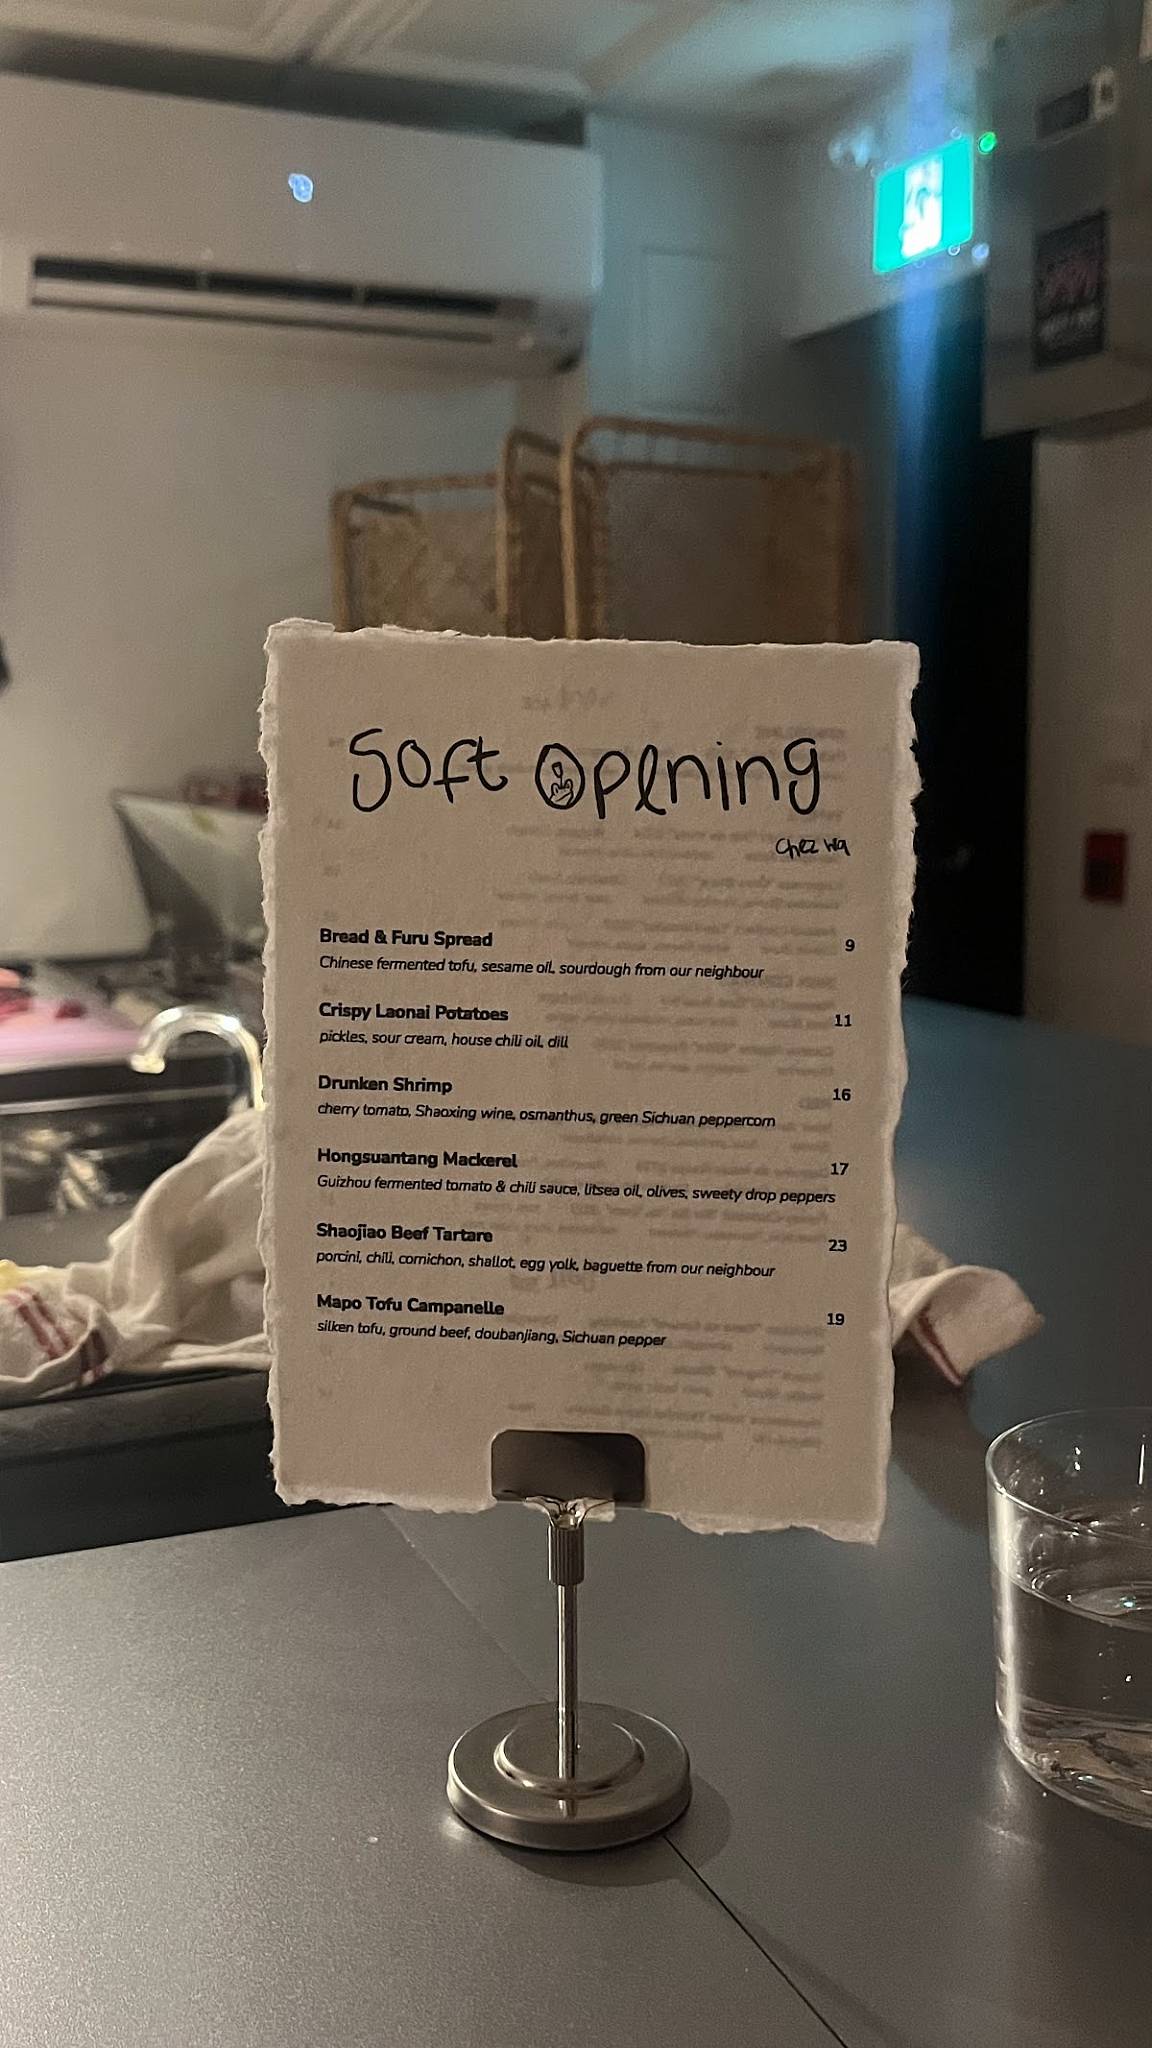 Soft Opening
Chez Wa
Bread & Furu Spread 9
Chinese fermented tofu, sesame oil, sourdough from our neighbour
Crispy Laonai Potatoes 11
pickles, sour cream, house chili oil, dill
Drunken Shrimp 16
cherry tomato, Shaoxing wine, osmanthus, green Sichuan peppercorn
Hongsuantang Mackerel 17
Guizhou fermented tomato & chili sauce, litsea oil, olives, sweety drop peppers
Shaojiao Beef Tartare 23
porcini, chili, cornichon, shallot, egg yolk, baguette from our neighbour
Mapo Tofu Campanelle 19
silken tofu, ground beef, doubanjiang, Sichuan pepper